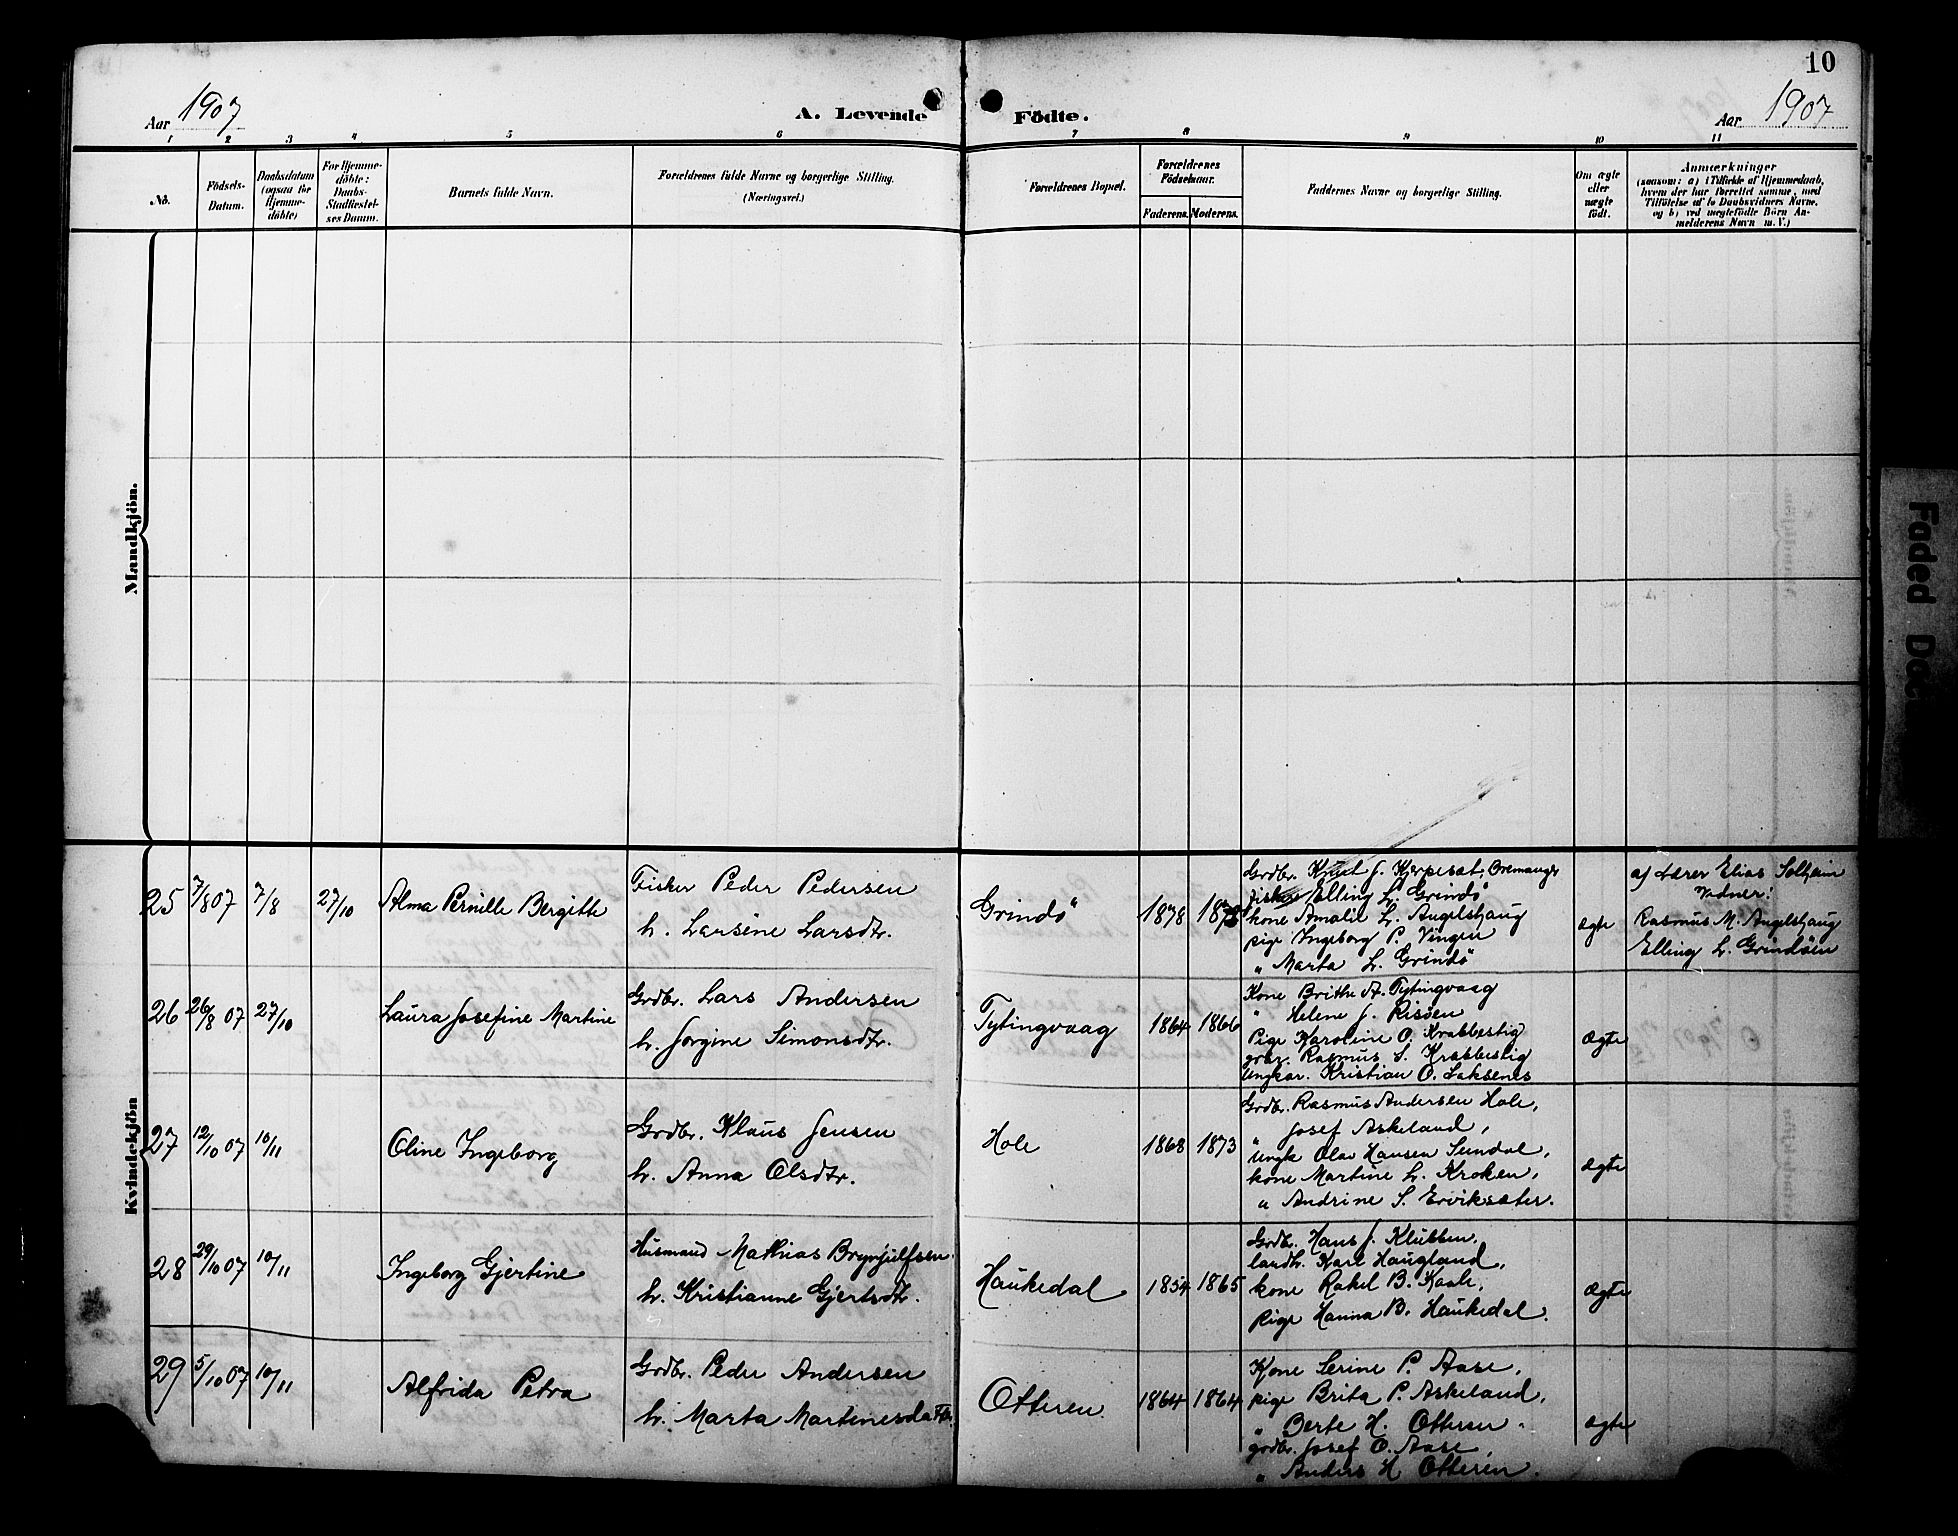 10
Aar 1907
A. Levende Födte.
Aar 1907
1 2 3 4 5 6 7 8 9 10 11
No.
Födsels-Datum.
Daabsdatum (ogsaa for Hjemme-döbte)
For Hjemme-döbte: Daabs-Stadfæstel-ses Datum.
Barnets fulde Navn.
Forældrenes fulde Navne og borgerlige Stilling. (Næringsvei.)
Forældrenes Bopæl.
Forældrenes Födselsaar.
Faderens. Moderens.
Faddernes Navne og borgerlige Stilling.
Om ægte eller uægte født.
Anmærkninger
(saasom: a) i Tilfælde af Hjemmedaab, hvem der har forrettet samme, med Tilföielse af to Daabsvidners Navne, og b) ved uægtefödte Börn An-melderens Navn m. V.)
Mandkjön.
Kvindekjön
25 7/8 07 7/8 27/10
Alma Pernille Bergitte
Fisker Peder Pedersen
h. Larsine Larsdtr.
Grindö
1878
Grdbr. Knut J. Kjerpeset, Bremanger
fisker Elling L. Grindö
kone Amalie L. Angelshaug
pige Ingeborg P. Vingen
" Marta L. Grindö
ægte
af Lærer Elias Solheim
Vidner:
Rasmus M. Angelshaug
Elling L. Grindöen
26 26/8 07 27/10
Laura Josefine Martine
Grdbr. Lars Andersen
h. Jorgine Simonsdtr.
Tytingvaag
1864 1866
Kone Brithe A. Tytingvaag
" Helene J. Risöen
Pige Karoline O. Krabbestig
gbr. Rasmus S. Krabbestig
Ungkar. Kristian O. Saksenes
Ægte
27 12/10 07 10/11
Oline Ingeborg
Grdbr. Klaus Jensen
h. Anna Olsdtr.
Hole
1868 1873
Grdbr. Rasmus Andersen Hole,
" Josef Askeland,
Ungk Olav Hansen Sundal,
kone Martine L. Kroken,
" Andrine S. Erviksæter.
ægte
28 29/10 07 10/11
Ingeborg Gjertine
Husmand Mathias Brynjulfsen.
h. Kristianne Gjertsdtr.
Haukedal
1854 1865
Grdbr. Hans J. Klubben,
landh. Karl Haugland,
kone Rakel B. Kaale,
pige Hanna B. Haukedal.
ægte
29 5/10 07 10/11
Alfrida Petra
Grdbr. Peder Andersen
h. Marta Martinesdatter.
Otteren.
1864 1864
Kone Serine P. Aase,
pige Brita P. Askeland,
" Berte H. Otteren.
grdbr. Josef O. Aase,
" Anders H Otteren.
ægte
Faded